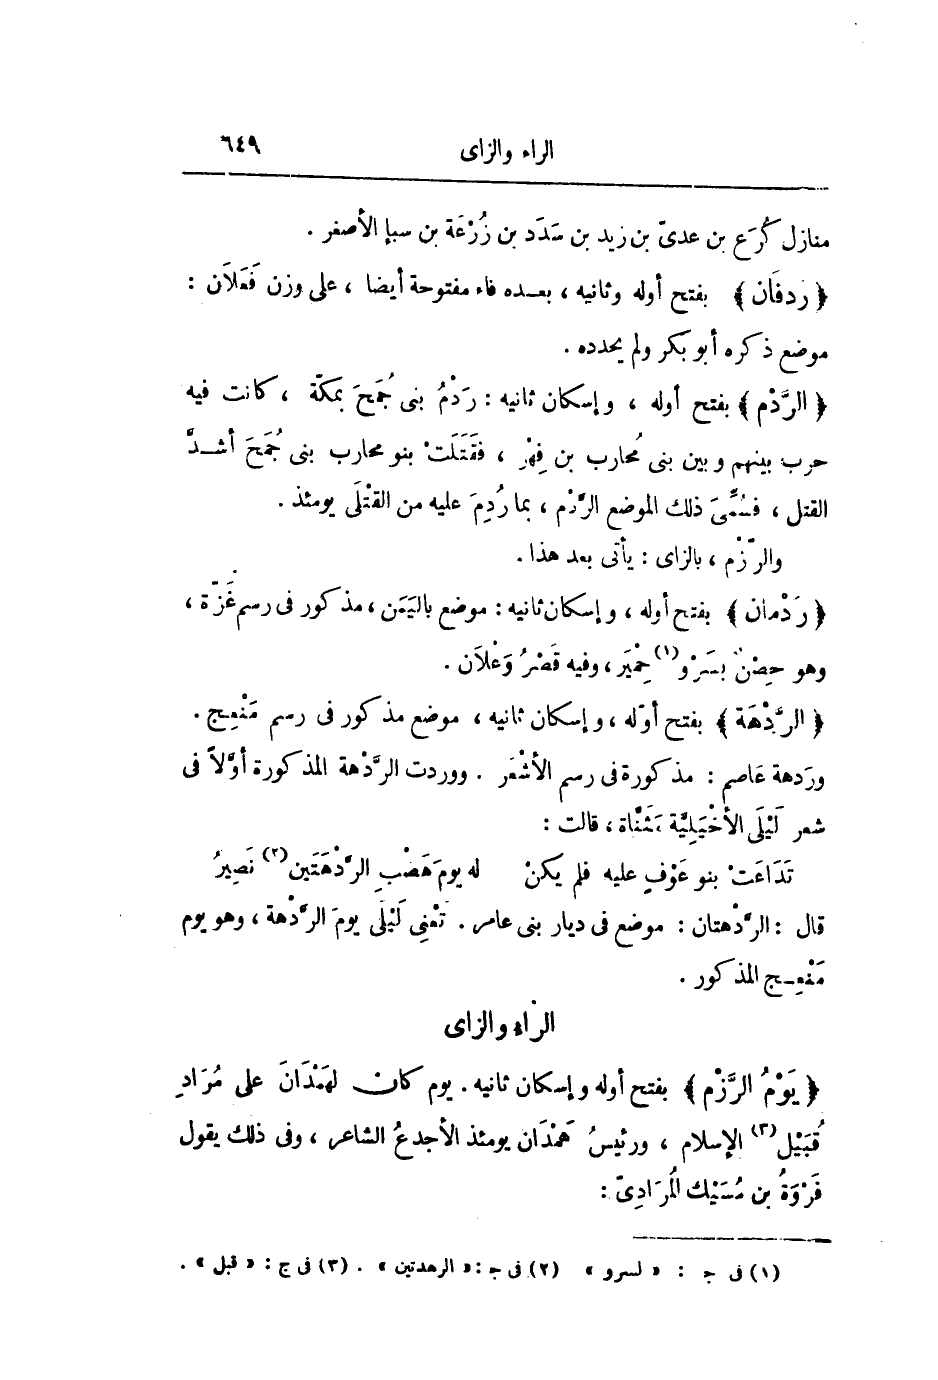 الراء والزاى ٦٤٩
منازل كُرَع بن عدىّ بن زيد بن سَدَد بن زُرْعَة بن سبإ الأصفر .
﴿ رَدفَان ﴾ بفتح أوله وثانيه ، بعده فاء مفتوحة أيضا ، على وزن فَعَلَان :
موضع ذكره أبو بكر ولم يحدده .
﴿ الرَّدْم ﴾ بفتح أوله ، وإسكان ثانيه : رَدْمُ بنى جُمَحَ بمكّة ، كانت فيه
حرب بينهم وبين بنى مُحارب بن فِهْر ، فقَتَلَتْ بنو محارب بنى جُمَحَ أشدَّ
القتل ، فسُمِّىَ ذلك الموضع الرَّدْم ، بما رُدِمَ عليه من القتْلَى يومئذ .
والرّزْم ، بالزاى : يأتى بعد هذا .
﴿ رَدْمان ﴾ بفتح أوله ، وإسكان ثانيه : موضع باليَمَن ، مذكور فى رسم غَزّة ،
وهو حِصْنٌ بسَرْو(١) حِمْيَر ، وفيه قَصْرُ وَعْلَان .
﴿ الرَّدْهَة ﴾ بفتح أوّله ، وإسكان ثانيه ، موضع مذكور فى رسم مَنْعِج .
ورَدهة عَاصم : مذكورة فى رسم الأشْعَر . ووردت الرَّدْهة المذكورة أوَّلاً فى
شعر لَيْلَى الأخْيَلِيَّة مَثَنَّاة ، قالت :
تَدَاعَتْ بنو عَوْفٍ عليه فلم يكنْ له يومَ هَضْبِ الرَّدْهَتَين(٢) نَصِيرُ
قال : الرَّدْهتان : موضع فى ديار بنى عامر . تَعْنِى لَيْلَى يومَ الرَّدْهة ، وهو يوم
مَنْعِج المذكور .
الراء والزاى
﴿ يَوْمُ الرَّزْم ﴾ بفتح أوله وإسكان ثانيه . يوم كان لهَمْدَانَ على مُرَادٍ
قُبَيْل(٣) الإسلام ، ورئيسُ هَمْدَان يومئذ الأجدعُ الشاعر ، وفى ذلك يقول
فَرْوَةُ بن مُسَيْك المُرَادِىّ :
(١) فى ج : « لسرو » (٢) فى ج : « الرهدتين » . (٣) فى ج : « قبل » .